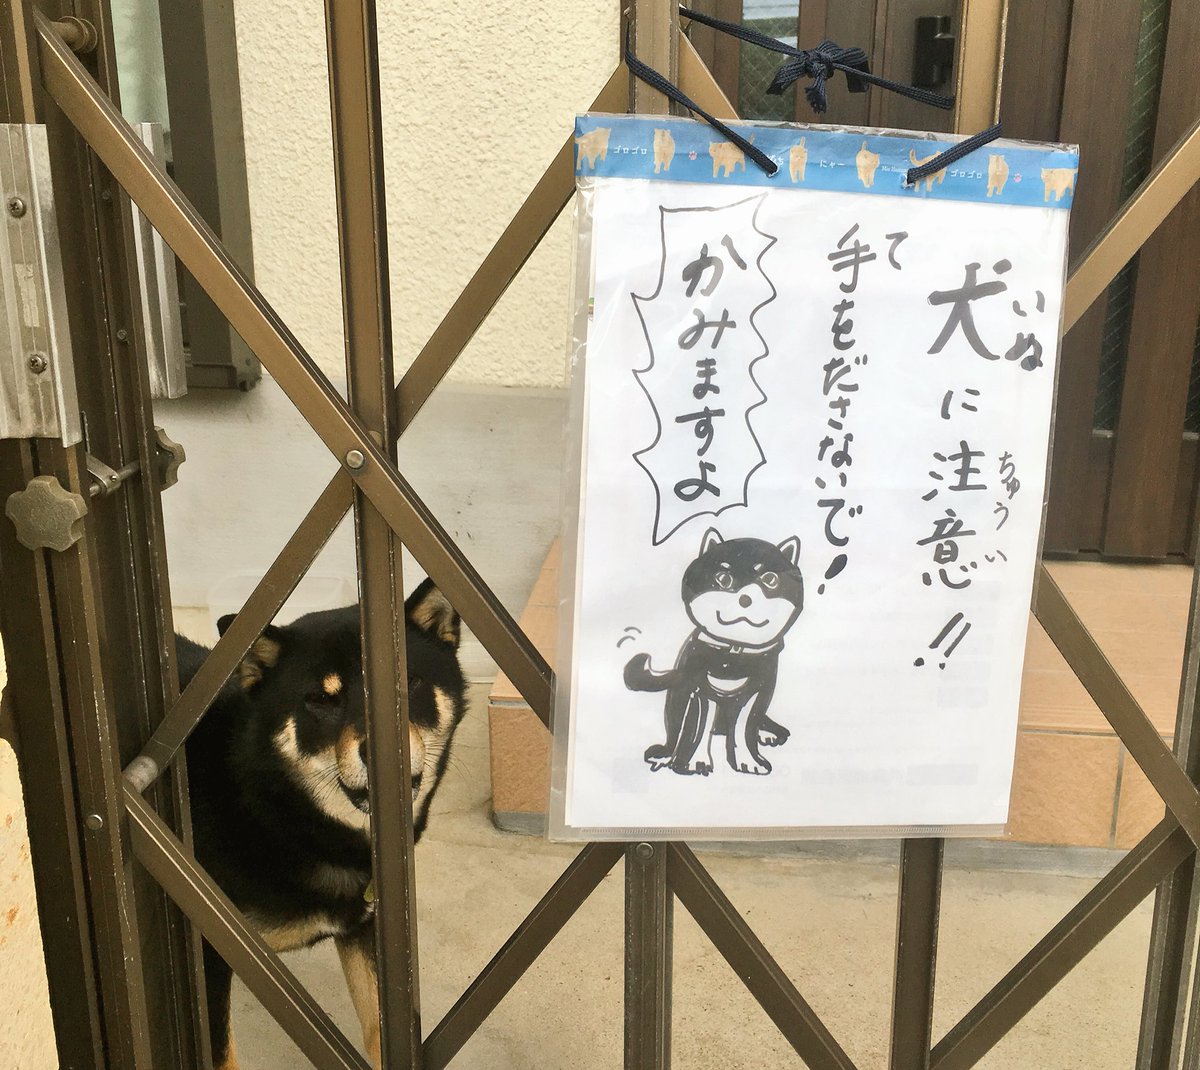 ゴロゴロ
にゃー
ゴロゴロ
犬に注意!!
いぬ
ちゅうい
手をださないで!
て
かみますよ